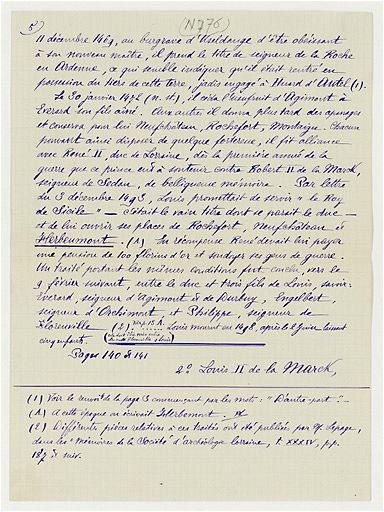 5 (N776)
11 décembre 1469, au burgrave d'Useldange d'être obéissant
à son nouveau maître, il prend le titre de seigneur de la Roche
en Ardenne, ce qui semble indiquer qu'il était rentré en
possession du tiers de cette terre, jadis engagé à Huard d'Autel (1).
Le 30 janvier 1472 (n. st), il céda l'usufruit d'Agimont à
Everard son fils aîné. Aux autres il donna plus tard des apanages
et conserva pour lui Neufchâteau, Rochefort, Montaigu. Chacun
pouvant ainsi disposer de quelque forteresse, il fit alliance
avec René II, duc de Lorraine, dès la première année de la
guerre que ce prince eut à soutenir contre Robert II de la Marck,
seigneur de Sedan, de belliqueuse mémoire. Par lettre
du 3 décembre 1493, Louis promettait de servir "le Roy
de Sicile" — c'était le vain titre dont se parait le duc —
et de lui ouvrir ses places de Rochefort, Neufchâteau &
Herbeumont. (A) En récompense René devait lui payer
une pension de 100 florins d'or et soudoyer ses gens de guerre.
Un traité portant les mêmes conditions fut conclu, vers le
9 février suivant, entre le duc et trois fils de Louis, savoir:
Everard, seigneur d'Agimont & de Durbuy, Engelbert,
seigneur d'Orchimont, et Philippe, seigneur de
Florenville (2). Louis mourut en 1498, après le 2 Juin laissant
cinq enfants.
Pages 140 & 141
2º Louis II de la Marck,
(1) Voir le renvoi de la page 3 commençant par les mots: "D'autre part".-
(A) A cette époque on écrivait Herbemont.
(2) Différentes pièces relatives à ces traités ont été publiées par M. Lepage,
dans les "Mémoires de la Société d'archéologie lorraine, t XXXIV, pp.
187 & suiv.